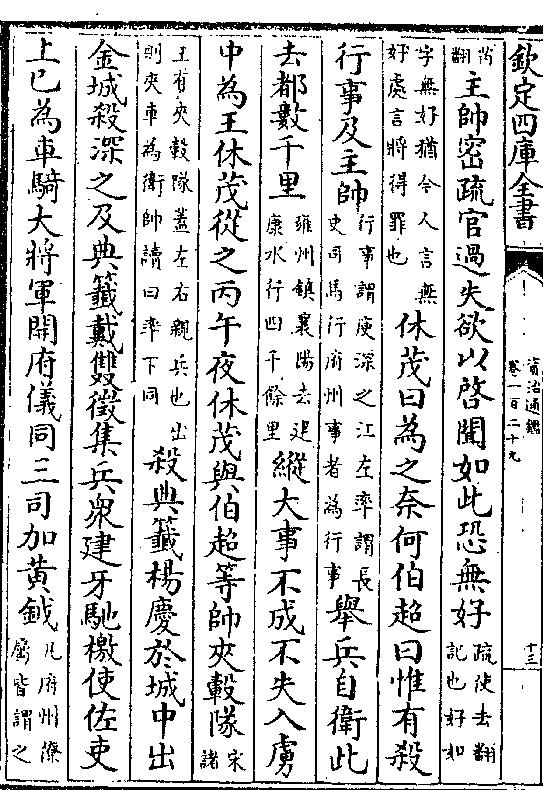 欽定四庫全書
資治通鑑
卷一百二十九
十三
芮翻主帥密疏官過失欲以啓聞如此恐無好疏使去翻記也好如
字無好猶今人言無好處言將得罪也休茂曰為之奈何伯超曰惟有殺
行事及主帥行事謂庾深之江左率謂長史司馬行府州事者為行事舉兵自衛此
去都數千里雍州鎮襄陽去建康水行四千餘里縱大事不成不失入虜
中為王休茂從之丙午夜休茂與伯超等帥夾轂隊宋諸
王有夾轂隊蓋左右親兵也出則夾車為衛帥讀曰率下同殺典籤楊慶於城中出
金城殺深之及典籤戴雙徵集兵衆建牙馳檄使佐吏
上已為車騎大將軍開府儀同三司加黃鉞凡府州僚屬皆謂之